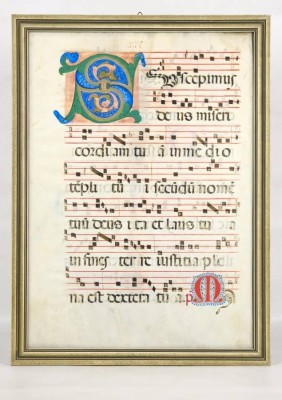 Suscepimus
deus miseri
cordi am tu ā in me di o
tēpli tu i secūdū nomē
tuū deus i ta et laus tu a
in fines ter re iusticia ple
na est dextera tu a. p M